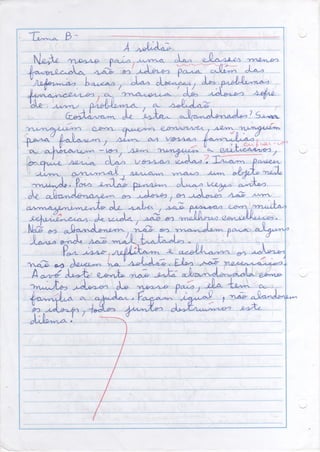 Tema B -
A solidão
Neste nosso país, uma das classes menos
favorecida são os idosos para além das
reformas baixas, das doenças, dos problemas
financeiros, a maioria dos idosos sofre
de um problema, a solidão.
Gostavam de estar abandonados? Sem
ninguém com quem conversar, sem ninguém
para falarem, sem as vossas famílias
a apoiarem-vos, sem ninguém a
o que seria das vossas vidas? Iriam parecer
um animal, seriam mais um objeto neste
mundo. Pois então pensem duas vezes antes
de abandonarem os idosos, os idosos são um
armazenamento de saber, são pessoas com muitas
experiências de vida, são os melhores conselheiros.
Não os abandonem, não os mandem para alguns
lares onde são mal tratados.
Por isso, reflitam e acolham os idosos
não os deixem na solidão. Eles são necessários.
A avó deste conto não está abandonada como
muitos idosos do nosso país, ela tem a
família a ajudar. Façam igual, não abandonem
os idosos, todos juntos destruimos este
dilema.